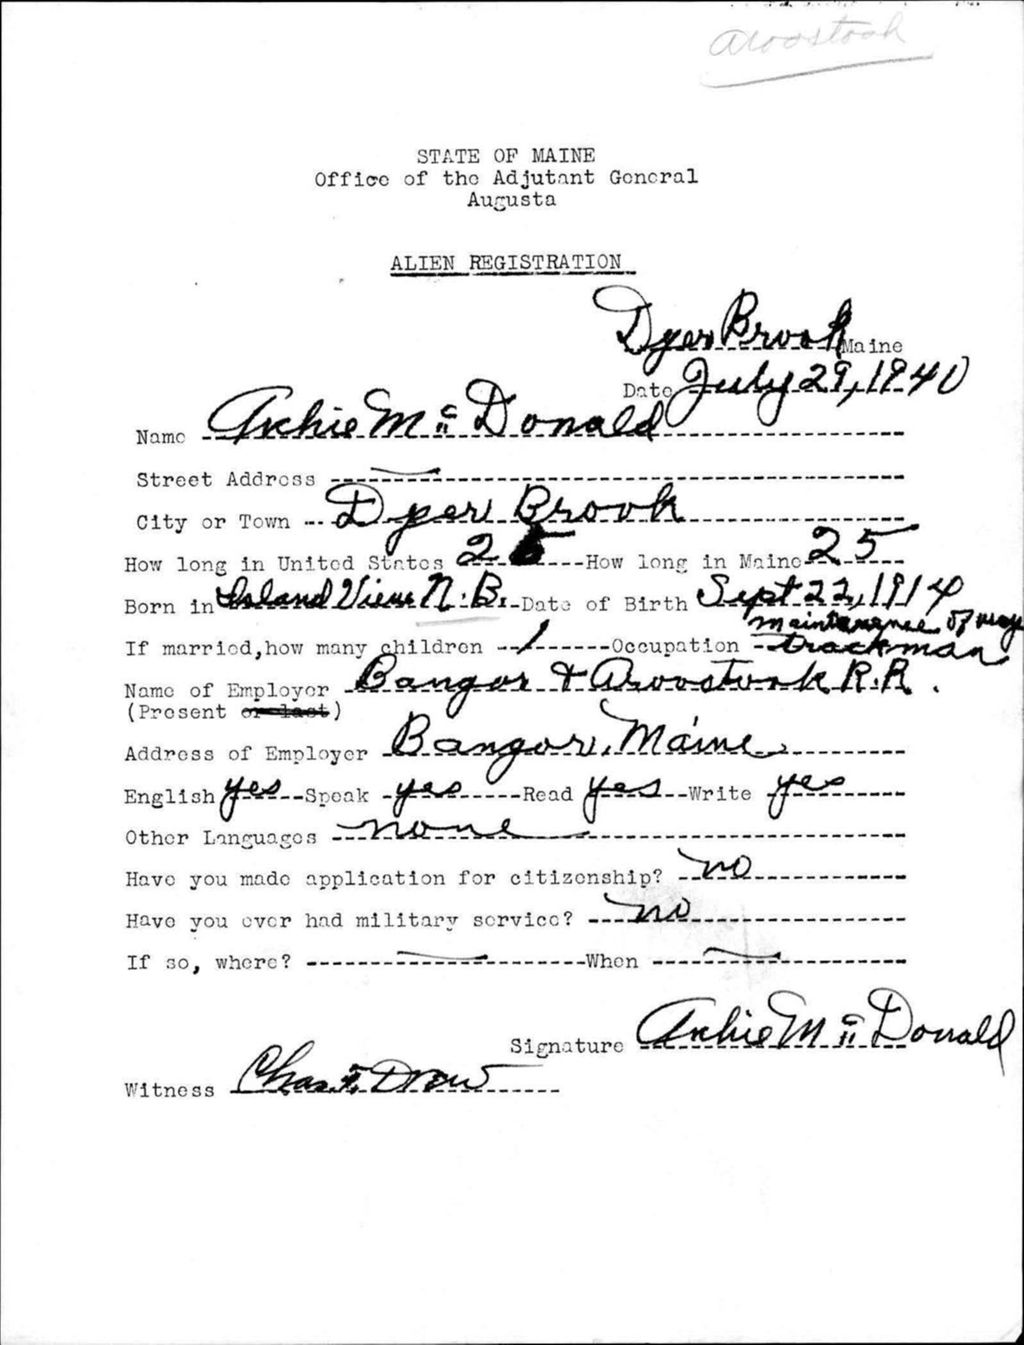 Aroostook
STATE OF MAINE
Office of the Adjutant General
Augusta
ALIEN REGISTRATION
Dyer Brook Maine
Date July 29, 1940
Name Archie Mc Donald
Street Address —
City or Town Dyer Brook
How long in United States 25 How long in Maine 25
Born in Island View N.B. Date of Birth Sept 22, 1914
maintenance of way
If married, how many children 1 Occupation trackman
Name of Employer Bangor & Aroostook R.R.
(Present or last)
Address of Employer Bangor, Maine
English yes Speak yes Read yes Write yes
Other Languages none
Have you made application for citizenship? no
Have you ever had military service? no
If so, where? — When —
Signature Archie Mc Donald
Witness Chas. F. Drew